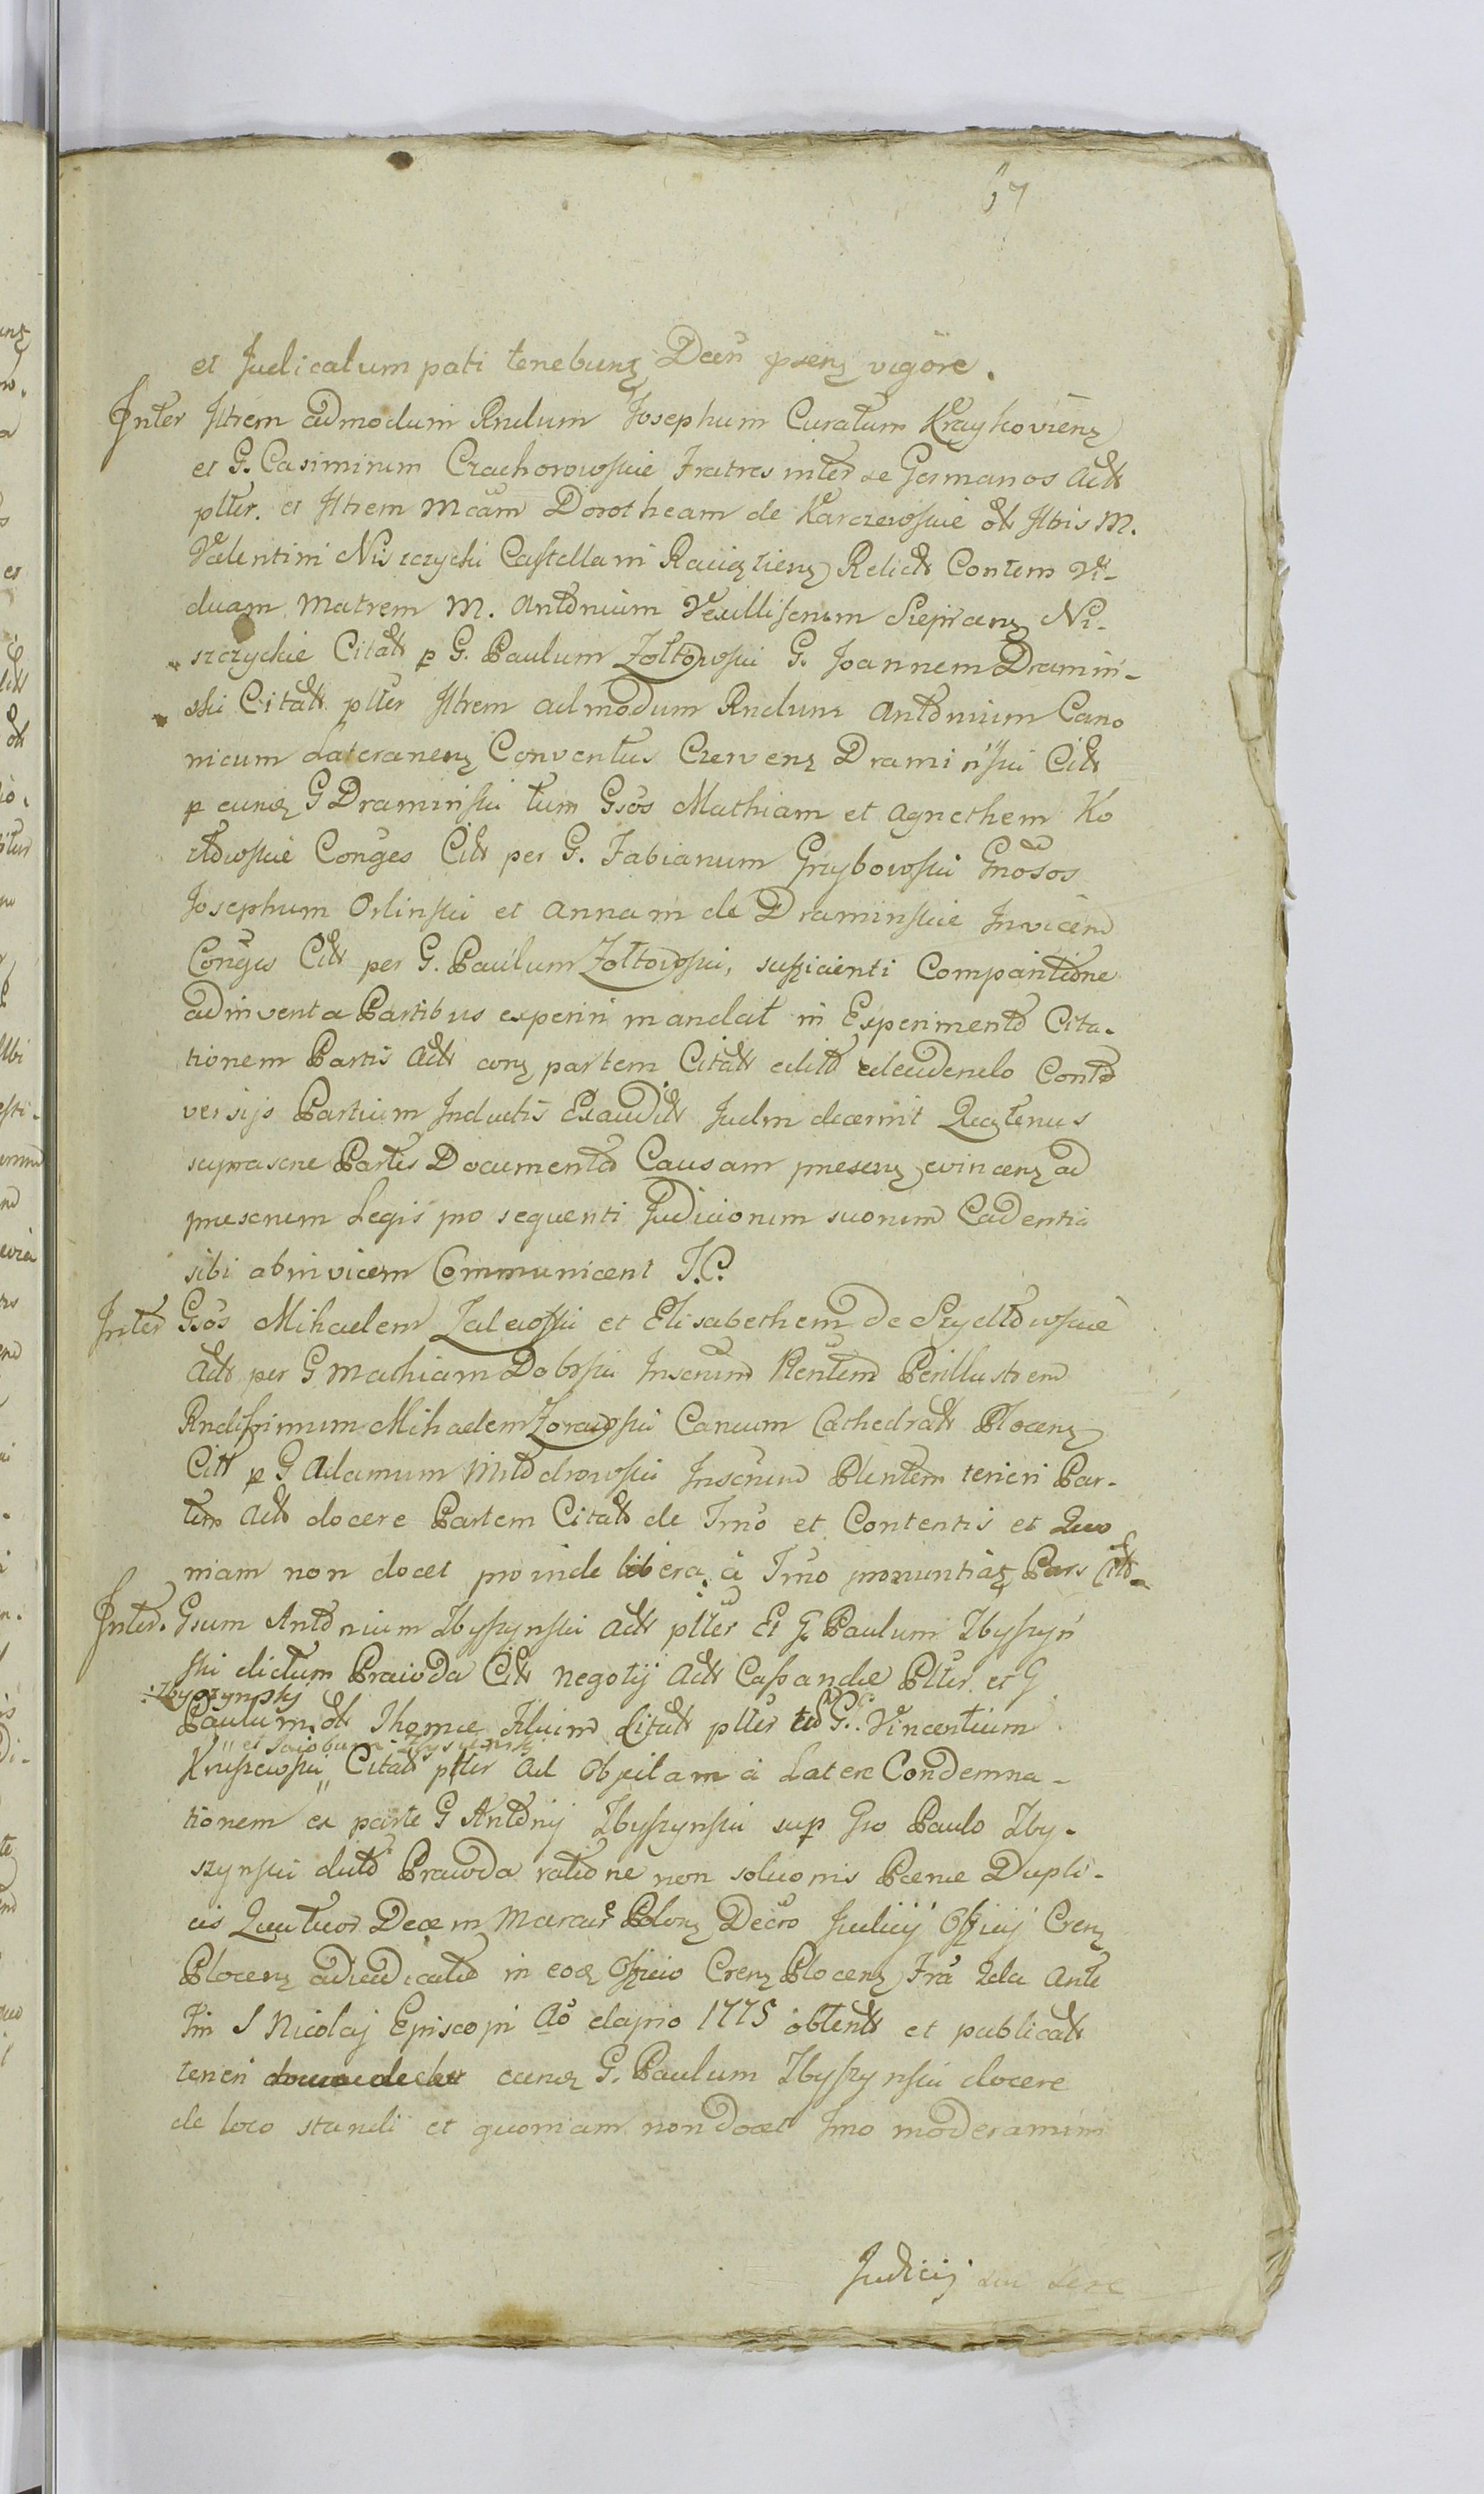 17
et Judicatum pati tenebunt Decti psens vigore.
Inter Iltrem admodum Rndum Josephum Curatum Kraykoviens
et G. Casimirum Czachorowskie Fratres inter se Germanos Act
plter. et Iltrem Mcam Dorotheam de Karczewskie ol Iltris M.
Valentini Niszczycki Castellani Raciąziens Relict Contem Vi-
duam Matrem M. Antonium Vexilliferum Sieprcens Ni-
szczyckie Citat p G. Paulum Zołtowski G. Joannem Dramin-
ski Citat plter Iltrem admodum Rndum Antonium Cano
nicum Lateranens Conventus Czerwens Draminski Cit
p eund G Draminski tum Gsos Mathiam et Agnethem Ko
złowskie Conges Cit per G. Fabianum Grzybowski Gnosos
Josephum Orlinski et Annam de Draminskie Invicem
Conges Cit per G. Paulum Zołtowski, sufficienti Comparitione
adinventa Partibus experiri mandat in Experimento Cita-
tionem Partis Act cora partem Citat edito edeudendo Conto
versijs Partium Inductis Exaudit Judm decernit Quatenus
suprascne Partes Documenta Causam presens evincens ad
prescnum Legis pro sequenti Judiciorum suorum Cadentia
sibi abinvicem Communicent I.C.
Inter Gsos Mihaelem Zalewski et Elisabethem de Szydłowskie
Act per G Mathiam Dobrski Inscnum Plentem Perillustrem
Rndissimum Mihaelem Zorawski Canum Cathedral Plocens
Citt p G Adamum Modrowski Inscnum Plentem teneri Par-
tem Act docere Partem Citat de Trno et Contentis et Quo
niam non docet proinde libera a Trno pronuntiat Pars Cit
Inter. Gsum Antonium Zbyszynski Act plter Et G. Paulum Zbyszyn
ski dictum Prawda Cit negotij Act Cassandae Plter et G
:Zbyszynskj
Paulum ol Thomae Filium Citat plter G. Vincentium
" et Jaiobum Zbyszynskj
Kruszewski " Citat plter Ad Objilam a Latere Condemna-
tionem ex parte G Antonij Zbyszynski sup Gso Paulo Zby-
szynski dicto Prawda ratione non soluonis Penae Dupli-
cis Quatuor Decem Marcar Polon Decro Judicij Officij Crens
Plocens adiudicato in eod Officio Crens Plocens Fra 2da Ante
Fm S Nicolaj Episcopi Ao elapso 1775 obtent et publicat
teneri eund G. Paulum Zbyszynski docere
de loco standi et quoniam non docet Imo moderamini
Judicij sui sese